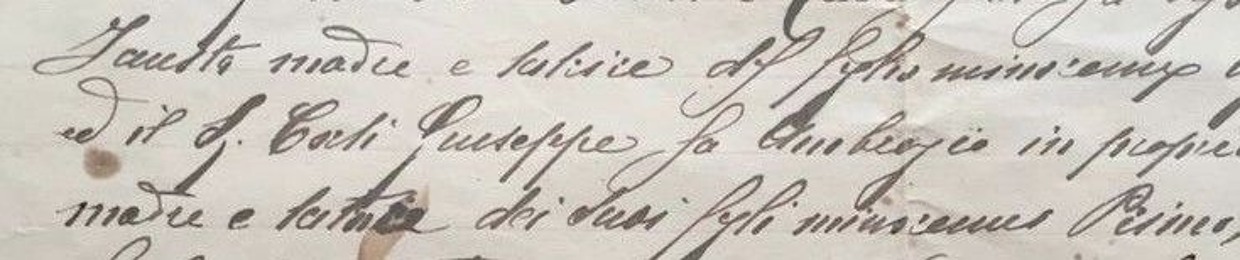 Fausto madre e tutrice del figlio minorenne
ed il S. Corti Giuseppe fu Ambrogio in propri
madre e tutrice dei suoi figli minorenni Primo,